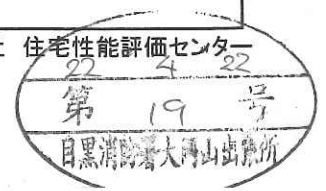 住宅性能評価センター
22 4 22
第 19 号
目黒消防署大岡山出張所